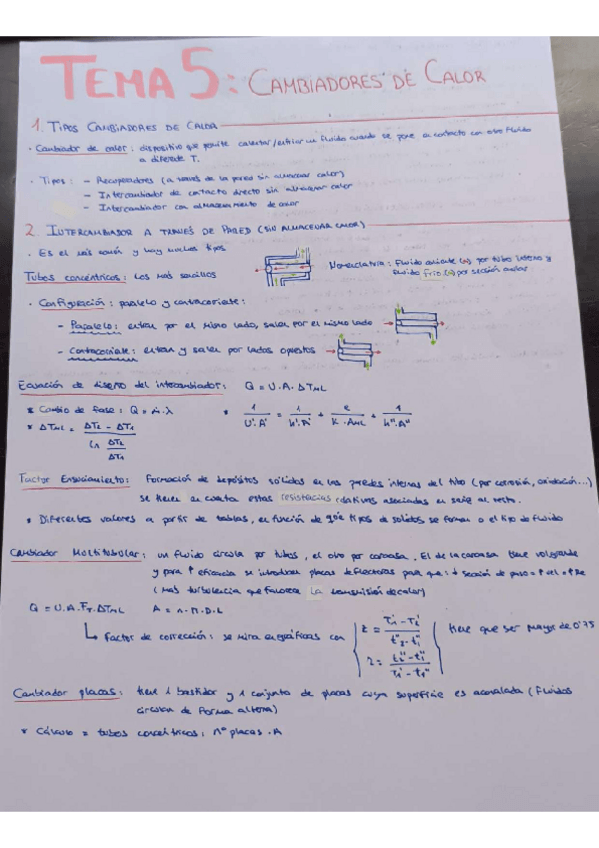 TEMA 5: CAMBIADORES DE CALOR
1. TIPOS CAMBIADORES DE CALOR
· Cambiador de calor: dispositivo que permite calentar/enfriar un fluido cuando se pone en contacto con otro fluido
a diferente T.
· Tipos: - Recuperadores (a través de la pared sin almacenar calor)
- Intercambiador de contacto directo sin almacenar calor
- Intercambiador con almacenamiento de calor
2. INTERCAMBIADOR A TRAVÉS DE PARED (SIN ALMACENAR CALOR)
· Es el más común y hay muchos tipos
Nomenclatura: Fluido caliente (') por tubo interno y
fluido frio (") por sección anular
Tubos concéntricos: Los más sencillos
· Configuración: paralelo y contracorriente:
- Paralelo: entran por el mismo lado, salen por el mismo lado
- Contracorriente: entran y salen por lados opuestos
Ecuación de diseño del intercambiador: Q = U.A.ΔTML
* Cambio de fase: Q = ṁ.λ
* 1/U'.A' = 1/h'.A' + e/K.AML + 1/h".A"
* ΔTML = ΔT2 - ΔT1 / Ln ΔT2/ΔT1
Factor Ensuciamiento: Formación de depósitos sólidos en las paredes internas del tubo (por corrosión, oxidación...)
se tienen en cuenta estas resistencias relativas asociadas en serie al resto.
* Diferentes valores a partir de tablas, en función de qué tipos de solidos se forman o el tipo de fluido
Cambiador Multitubular: un fluido circula por tubos, el otro por carcasa. El de la carcasa tiene vol grande
y para ↑ eficiencia se introducen placas deflectoras para que: ↓ sección de paso = ↑ vel = ↑ Re
(más turbulencia que favorece la transmisión de calor)
Q = U.A.FT.ΔTML A = n.π.D.L
Factor de corrección: se mira en gráficas con
z = T1' - T2' / t2" - t1"
r = t2" - t1" / T1' - t1"
tiene que ser mayor de 0'75
Cambiador placas: tiene 1 bastidor y 1 conjunto de placas cuya superficie es acanalada (fluidos
circulan de forma alterna)
* Cálculo = tubos concéntricos; nº placas . A